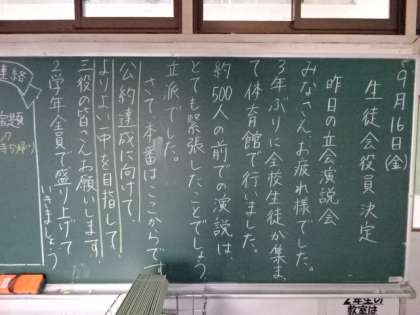 9月16日(金)
生徒会役員 決定
昨日の立会演説会
みなさん、お疲れ様でした。
3年ぶりに全校生徒が集ま
て体育館で行いました。
約500人の前での演説は、
とても緊張したことでしょう
立派でした。
さて、本番はここからです
公約達成に向けて、
よりよい一中を目指して、
三役の皆さんお願いします。
2学年全員で盛り上げて
いきましょう
連絡
宿題
持ち帰り
2年生の
教室は